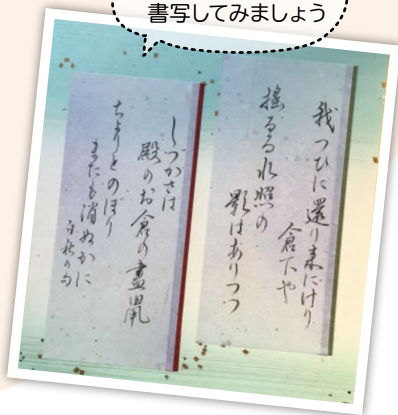 書写してみましょう
我つひに還り来にけり
倉下や
揺るる水照の
影はありつつ
しづかさは
殿のお倉の晝鼠
ちよりとのぼり
またも消ぬかに
白秋の句